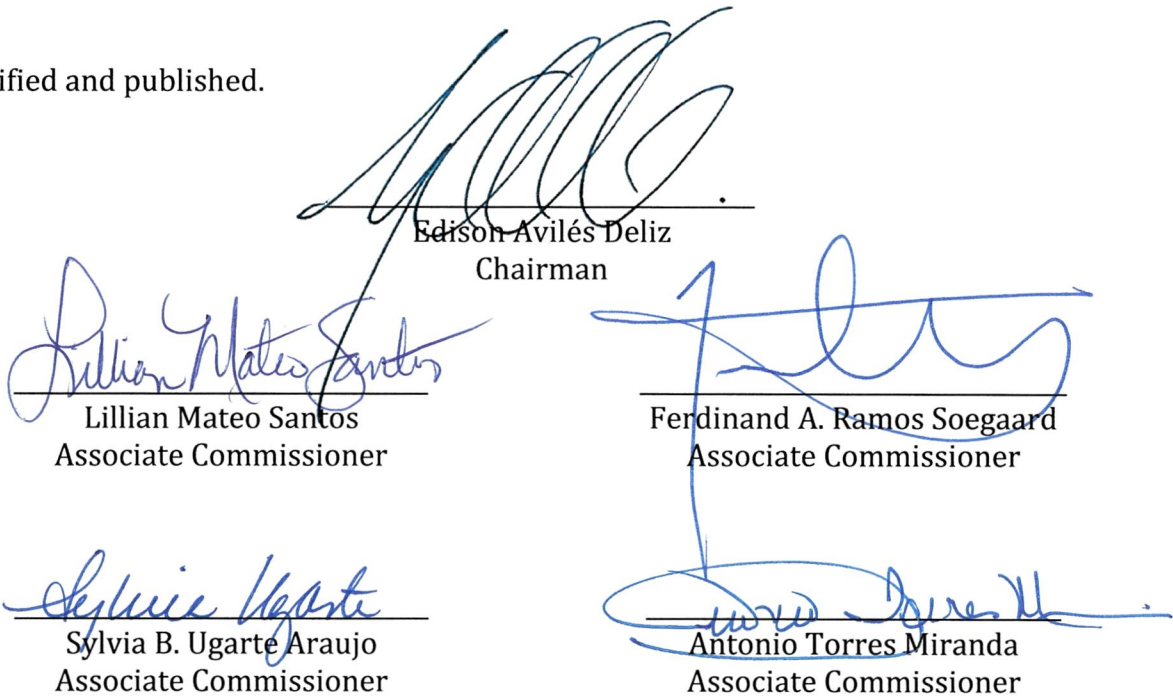 ified and published.
Edison Avilés Deliz
Chairman
Lillian Mateo Santos
Lillian Mateo Santos
Associate Commissioner
Ferdinand A. Ramos Soegaard
Associate Commissioner
Sylvia Ugarte
Sylvia B. Ugarte Araujo
Associate Commissioner
Antonio Torres Miranda
Associate Commissioner